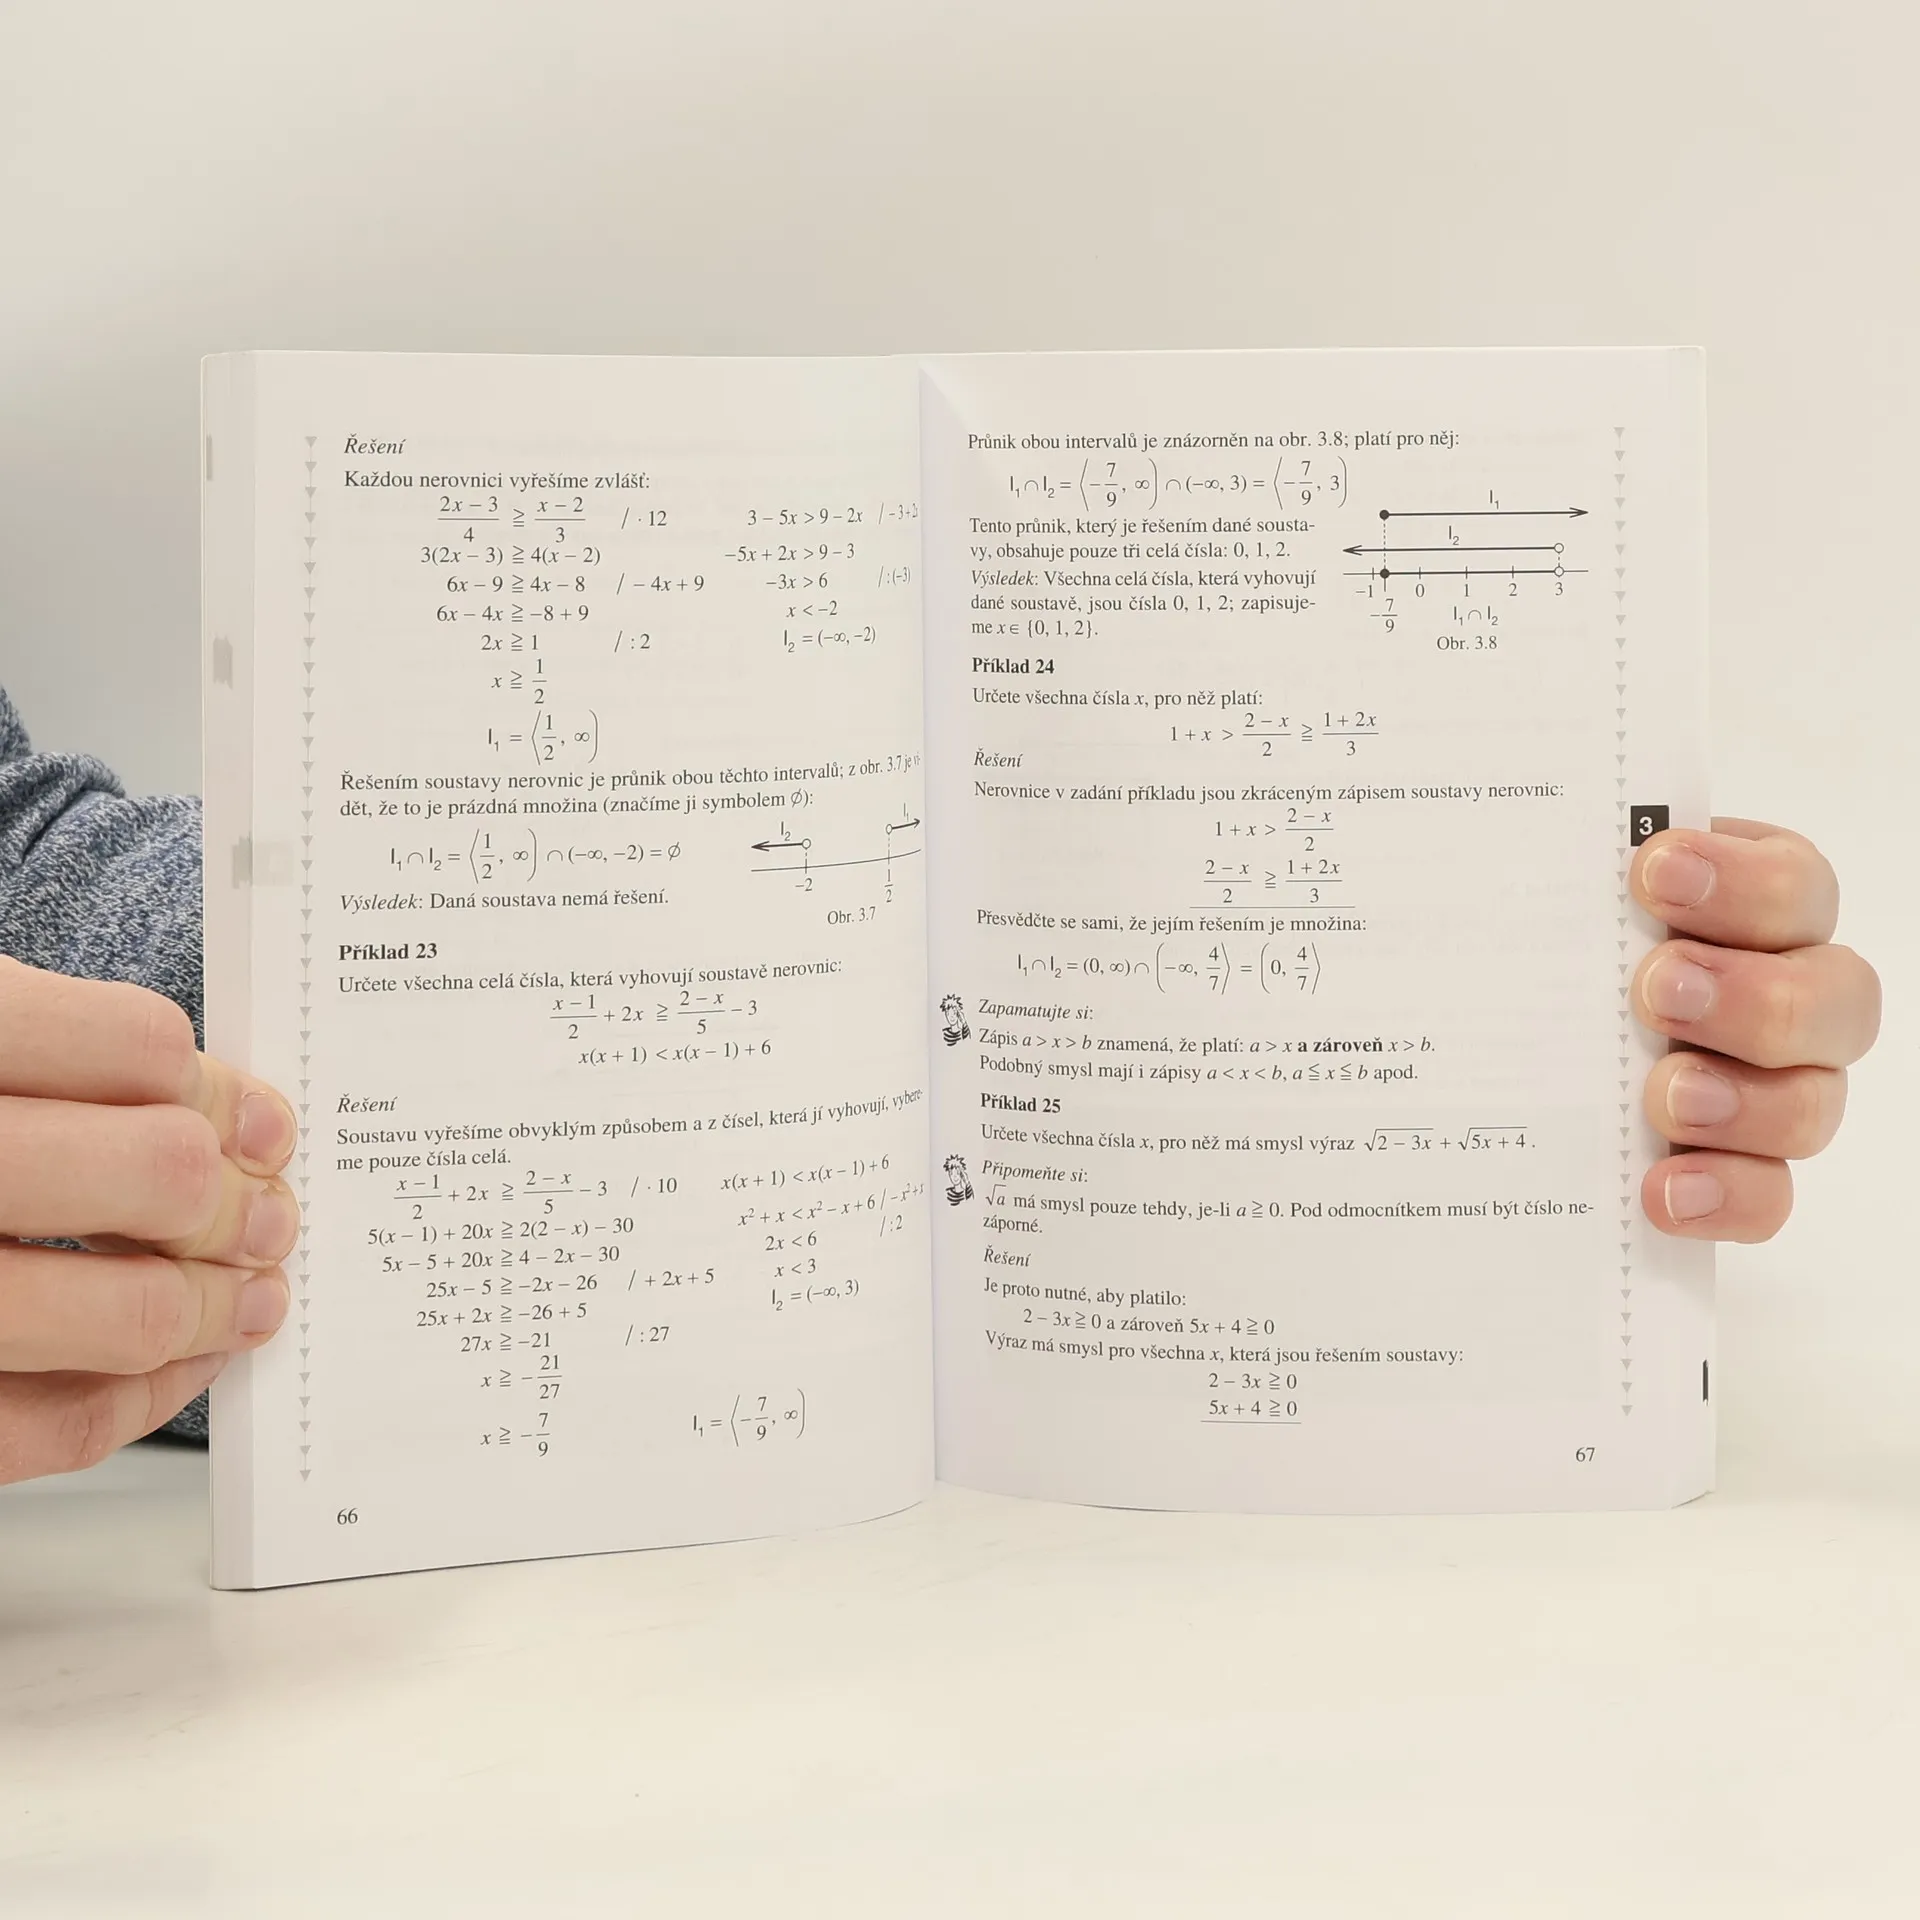 Řešení
Každou nerovnici vyřešíme zvlášť:
(2x – 3)/4 ≧ (x – 2)/3 / · 12
3(2x – 3) ≧ 4(x – 2)
6x – 9 ≧ 4x – 8 / – 4x + 9
6x – 4x ≧ –8 + 9
2x ≧ 1 / : 2
x ≧ 1/2
I₁ = ⟨1/2, ∞)
3 – 5x > 9 – 2x / –3+2x
–5x + 2x > 9 – 3
–3x > 6 / :(–3)
x < –2
I₂ = (–∞, –2)
Řešením soustavy nerovnic je průnik obou těchto intervalů; z obr. 3.7 je vi-
dět, že to je prázdná množina (značíme ji symbolem ∅):
I₁ ∩ I₂ = ⟨1/2, ∞) ∩ (–∞, –2) = ∅
I₂ I₁
–2 1/2
Obr. 3.7
Výsledek: Daná soustava nemá řešení.
Příklad 23
Určete všechna celá čísla, která vyhovují soustavě nerovnic:
(x – 1)/2 + 2x ≧ (2 – x)/5 – 3
x(x + 1) < x(x – 1) + 6
Řešení
Soustavu vyřešíme obvyklým způsobem a z čísel, která jí vyhovují, vybere-
me pouze čísla celá.
(x – 1)/2 + 2x ≧ (2 – x)/5 – 3 / · 10
5(x – 1) + 20x ≧ 2(2 – x) – 30
5x – 5 + 20x ≧ 4 – 2x – 30
25x – 5 ≧ –2x – 26 / + 2x + 5
25x + 2x ≧ –26 + 5
27x ≧ –21 / : 27
x ≧ –21/27
x ≧ –7/9
x(x + 1) < x(x – 1) + 6
x² + x < x² – x + 6 / –x²+x
2x < 6 / :2
x < 3
I₂ = (–∞, 3)
I₁ = ⟨–7/9, ∞)
66
Průnik obou intervalů je znázorněn na obr. 3.8; platí pro něj:
I₁ ∩ I₂ = ⟨–7/9, ∞) ∩ (–∞, 3) = ⟨–7/9, 3)
Tento průnik, který je řešením dané sousta-
vy, obsahuje pouze tři celá čísla: 0, 1, 2.
Výsledek: Všechna celá čísla, která vyhovují
dané soustavě, jsou čísla 0, 1, 2; zapisuje-
me x ∈ {0, 1, 2}.
I₁
I₂
–1 0 1 2 3
–7/9 I₁ ∩ I₂
Obr. 3.8
Příklad 24
Určete všechna čísla x, pro něž platí:
1 + x > (2 – x)/2 ≧ (1 + 2x)/3
Řešení
Nerovnice v zadání příkladu jsou zkráceným zápisem soustavy nerovnic:
1 + x > (2 – x)/2
(2 – x)/2 ≧ (1 + 2x)/3
Přesvědčte se sami, že jejím řešením je množina:
I₁ ∩ I₂ = (0, ∞) ∩ (–∞, 4/7⟩ = (0, 4/7⟩
Zapamatujte si:
Zápis a > x > b znamená, že platí: a > x a zároveň x > b.
Podobný smysl mají i zápisy a < x < b, a ≦ x ≦ b apod.
Příklad 25
Určete všechna čísla x, pro něž má smysl výraz √(2 – 3x) + √(5x + 4) .
Připomeňte si:
√a má smysl pouze tehdy, je-li a ≧ 0. Pod odmocnítkem musí být číslo ne-
záporné.
Řešení
Je proto nutné, aby platilo:
2 – 3x ≧ 0 a zároveň 5x + 4 ≧ 0
Výraz má smysl pro všechna x, která jsou řešením soustavy:
2 – 3x ≧ 0
5x + 4 ≧ 0
67
3